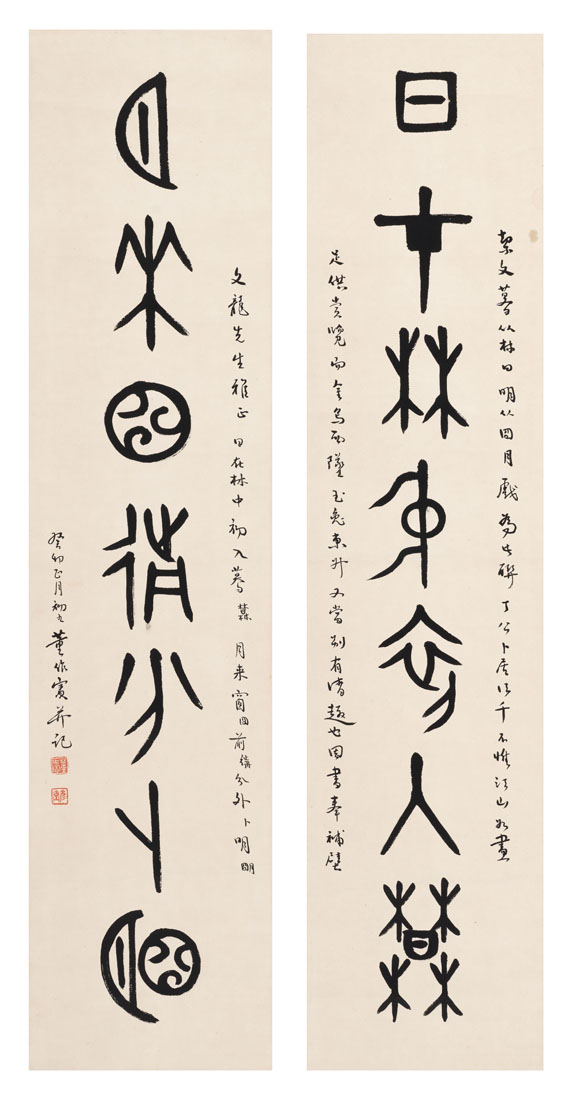 日才林中初入暮
契文暮从林日明从囧月戲為此聯丁公卜居千不惟江山如畫
足供賞覽而金烏西墜玉兔東升又當別有清趣也因書奉補壁
月來囧前分卜明
文龍先生雅正 日在林中初入暮 月來窗囧前分外卜明朙
癸卯正月初九董作賓并記